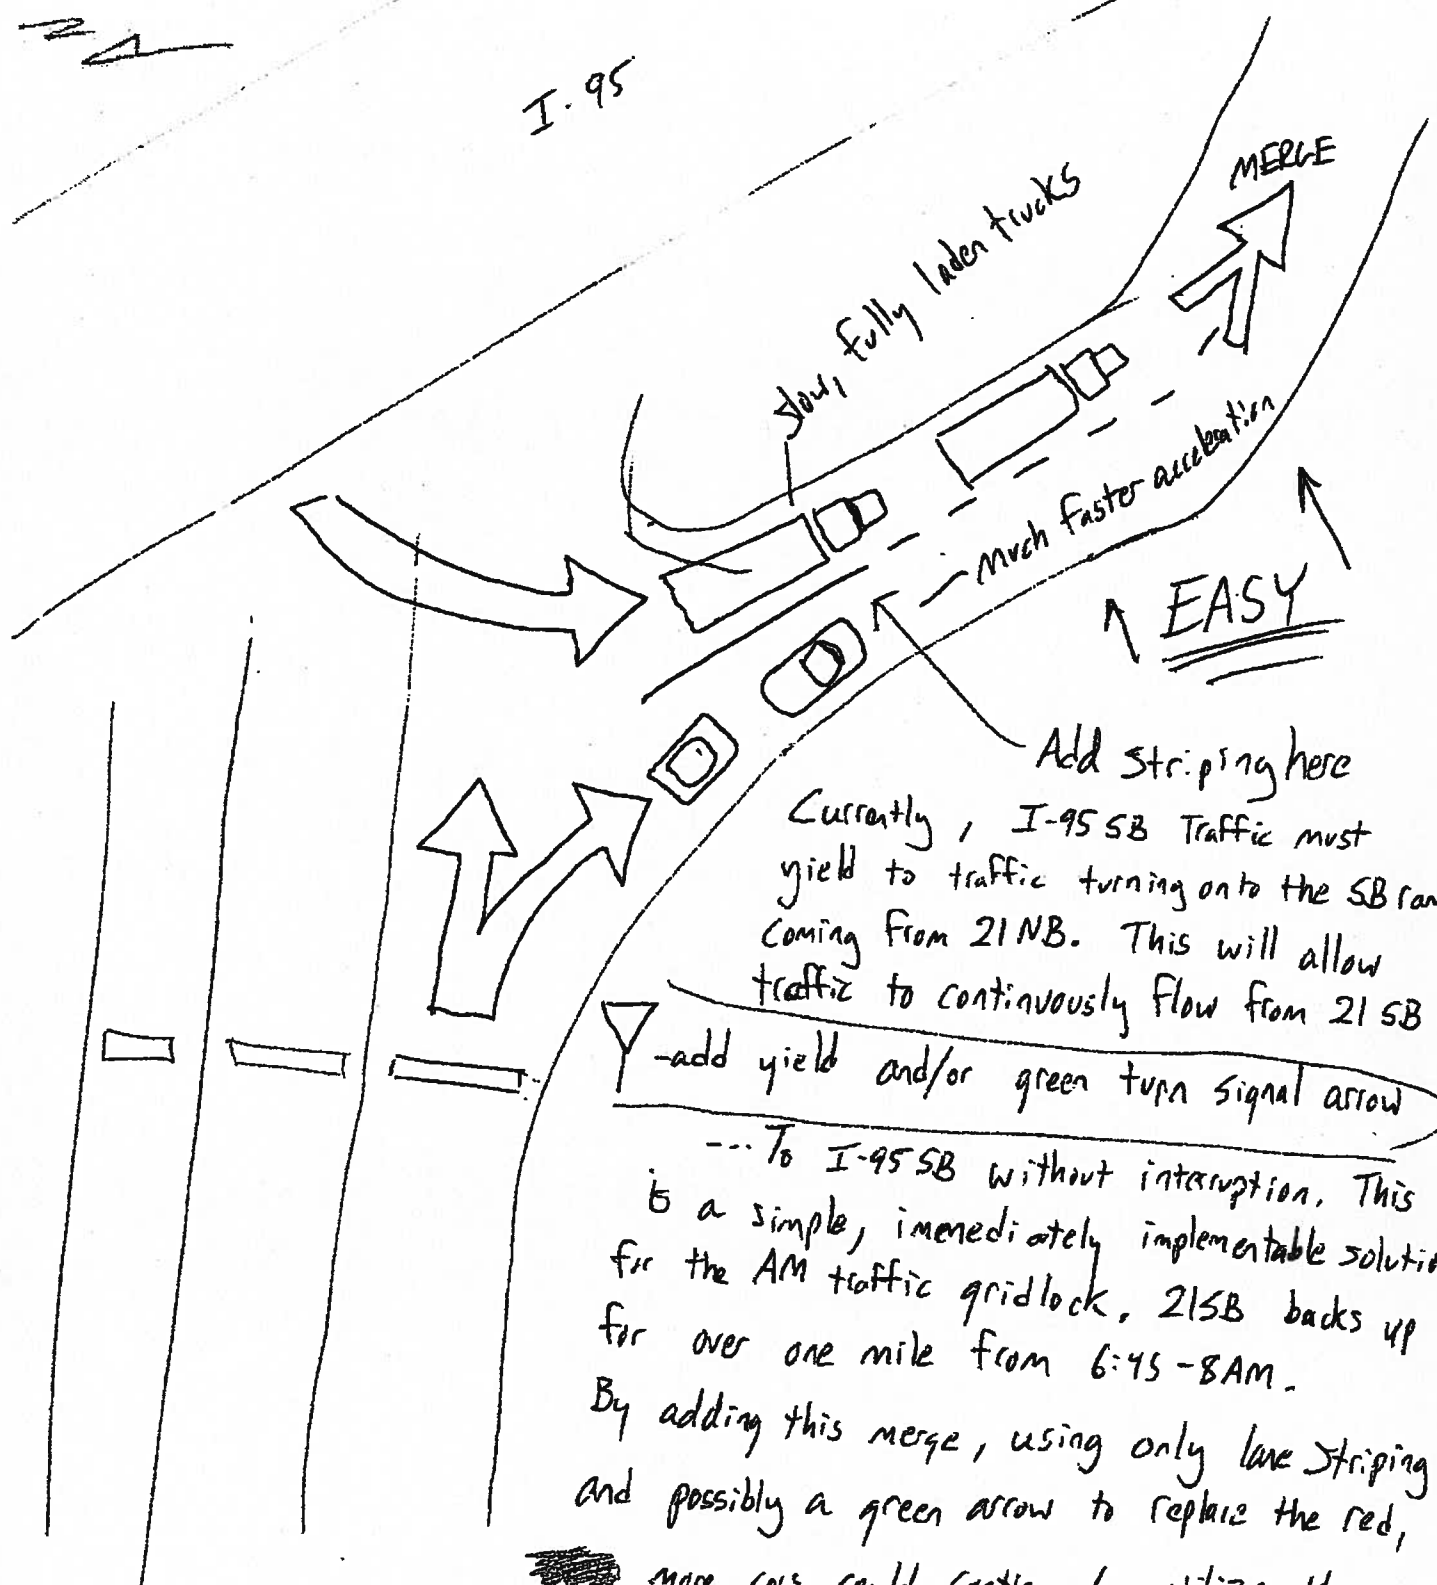 N
I-95
MERGE
slow, fully laden trucks
much faster acceleration
EASY
Add striping here
Currently, I-95 SB Traffic must
yield to traffic turning onto the SB ram
coming from 21 NB. This will allow
traffic to continuously flow from 21 SB
-add yield and/or green turn signal arrow
--- To I-95 SB without interruption. This
is a simple, imenediately implementable solutio
for the AM traffic gridlock. 21SB backs up
for over one mile from 6:45-8AM.
By adding this merge, using only lane striping
and possibly a green arrow to replace the red,
more cars could